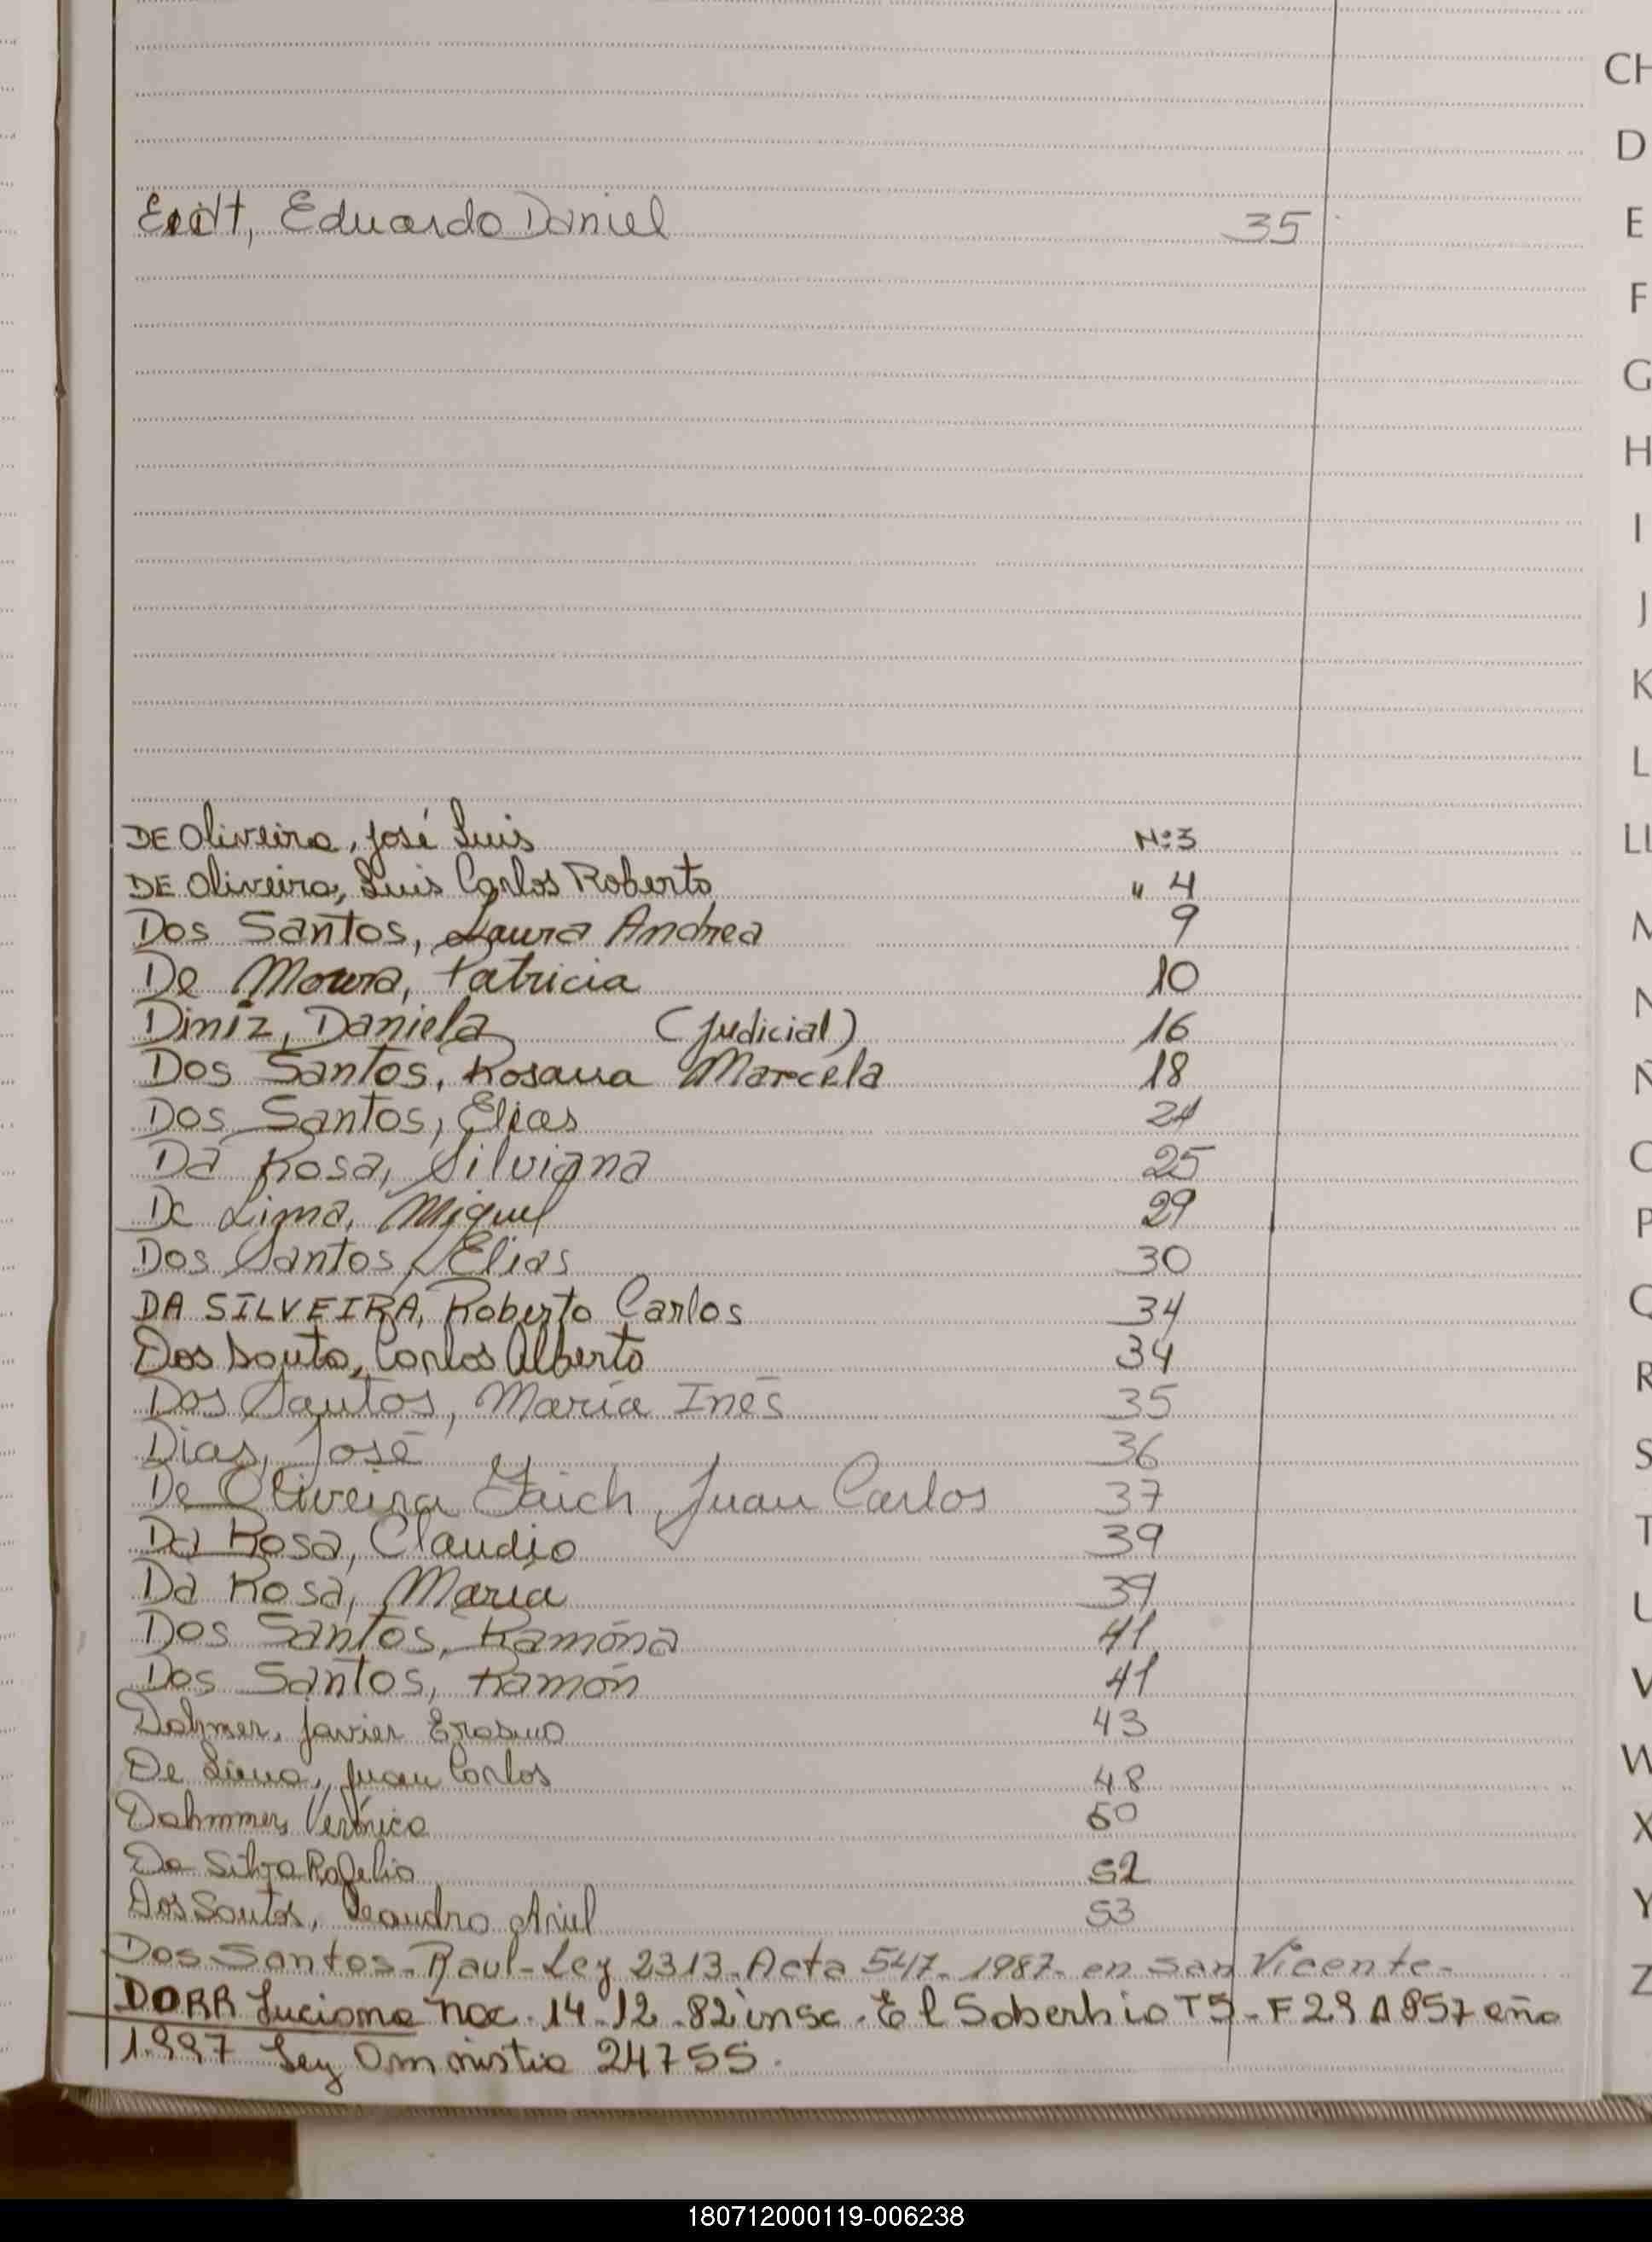 CH
D
Eduardo Daniel 35
E
F
G
H
I
J
K
L
DE Oliveira, José Luis N:3
LL
DE Oliveira, Luis Carlos Roberto " 4
Dos Santos, Laura Andrea 9
M
De Moura, Patricia 10
N
Diniz, Daniela (Judicial) 16
Dos Santos, Rosana Marcela 18
Ñ
Dos Santos, Elias 24
Da Rosa, Silviana 25
O
De Lima, Miguel 29
P
Dos Santos, Elias 30
DA SILVEIRA, Roberto Carlos 34
Q
Dos Santo, Carlos Alberto 34
R
Dos Santos, María Inés 35
Dias, José 36
S
De Oliveira Juan Carlos 37
Da Rosa, Claudio 39
T
Da Rosa, María 39
U
Dos Santos, Ramóna 41
Dos Santos, Ramón 41
V
Dahmer, Javier Erasmo 43
De Lima, Juan Carlos 48
W
Dahmmer, Verónica 50
X
Da Silva Rogelio 52
Dos Santos, Leandro Ariel 53
Y
Dos Santos - Raul - Ley 2313 - Acta 547 - 1987 - en San Vicente -
Z
DORR Luciana nac. 14-12-82 insc. El Soberbio T5 - F 29 A 857 año
1.997 Ley Amnistia 24755.
180712000119-006238